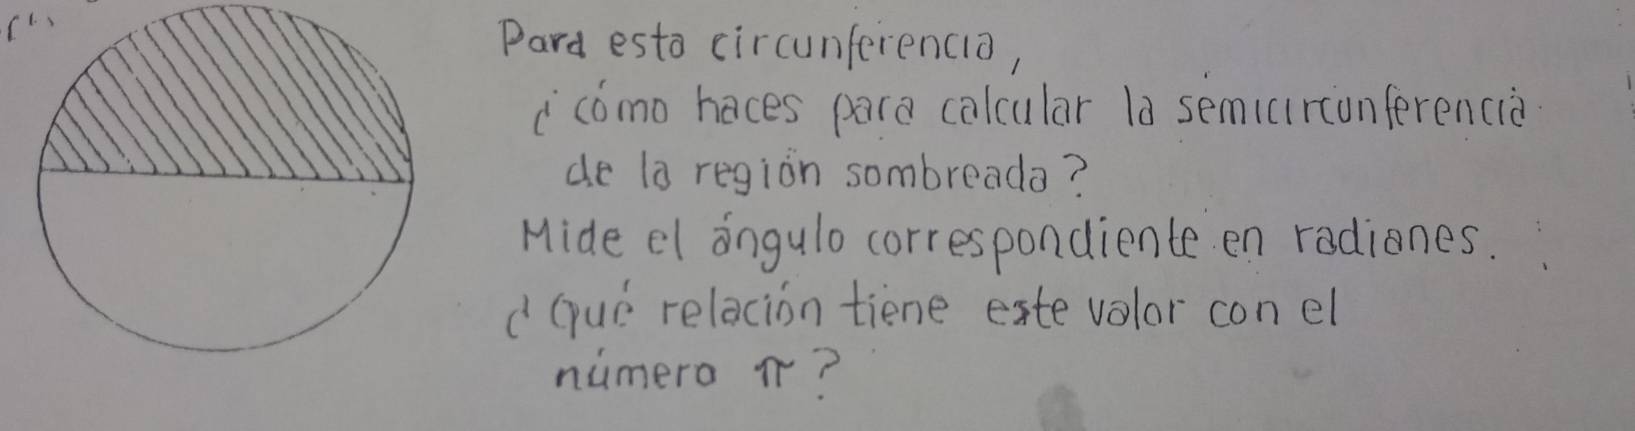 Para esta circunferencia,
¿cómo haces para calcular la semicircunferencia
de la región sombreada?
Mide el ángulo correspondiente en radianes.
¿Qué relación tiene este valor con el
número π?